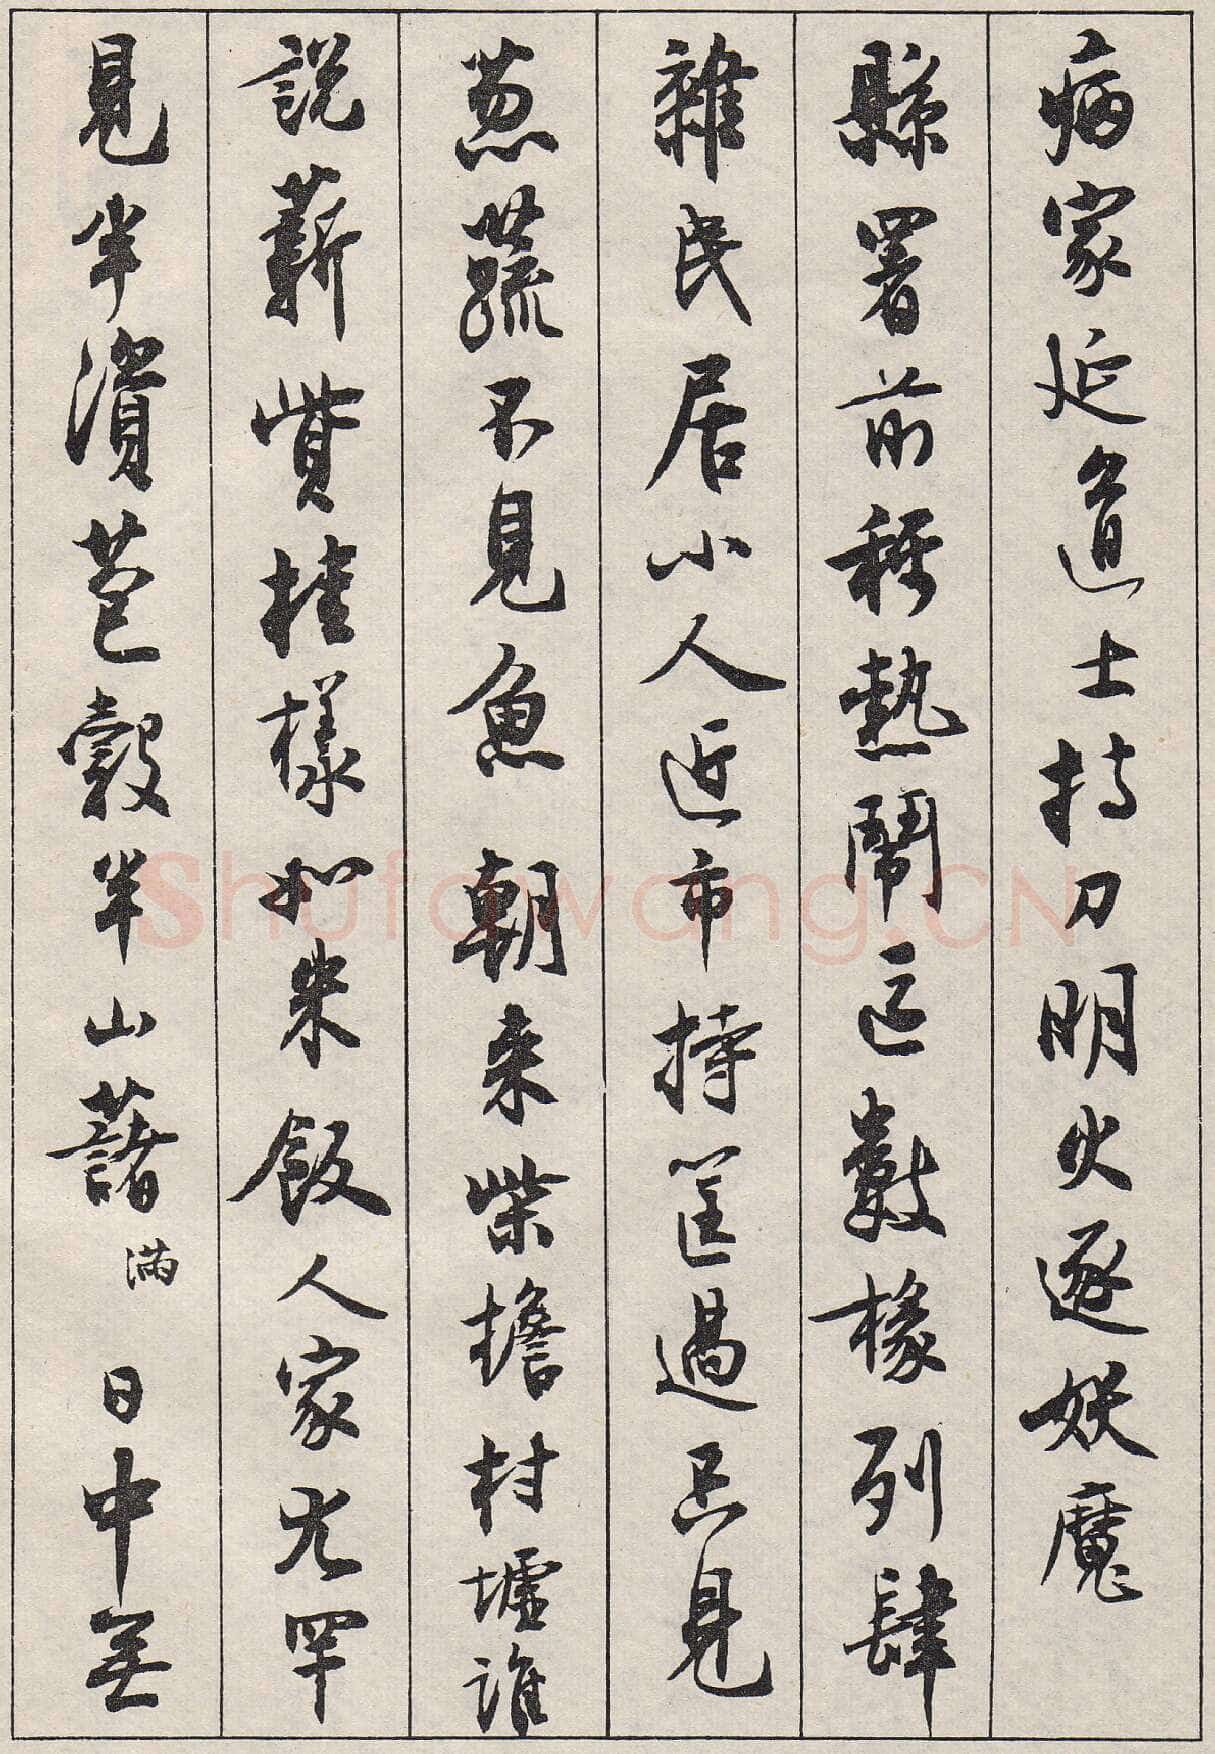 病家延道士持刀明火逐妖魔
縣署前稱熱鬧區數椽列肆
雜民居小人近市持筐過只見
蔥蔬不見魚 朝来柴擔村墟誰
說薪貲桂樣如米飯人家尤罕
見半瀆苞穀半山藷 滿 日中無
Shufawang.CN